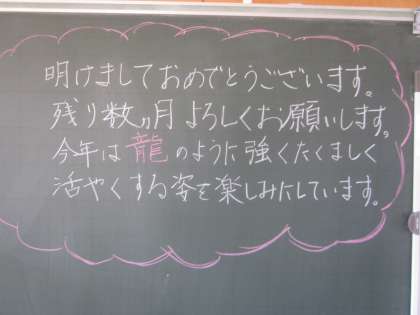 明けましておめでとうございます。
残り数ヵ月よろしくお願いします。
今年は龍のように強くたくましく
活やくする姿を楽しみにしています。